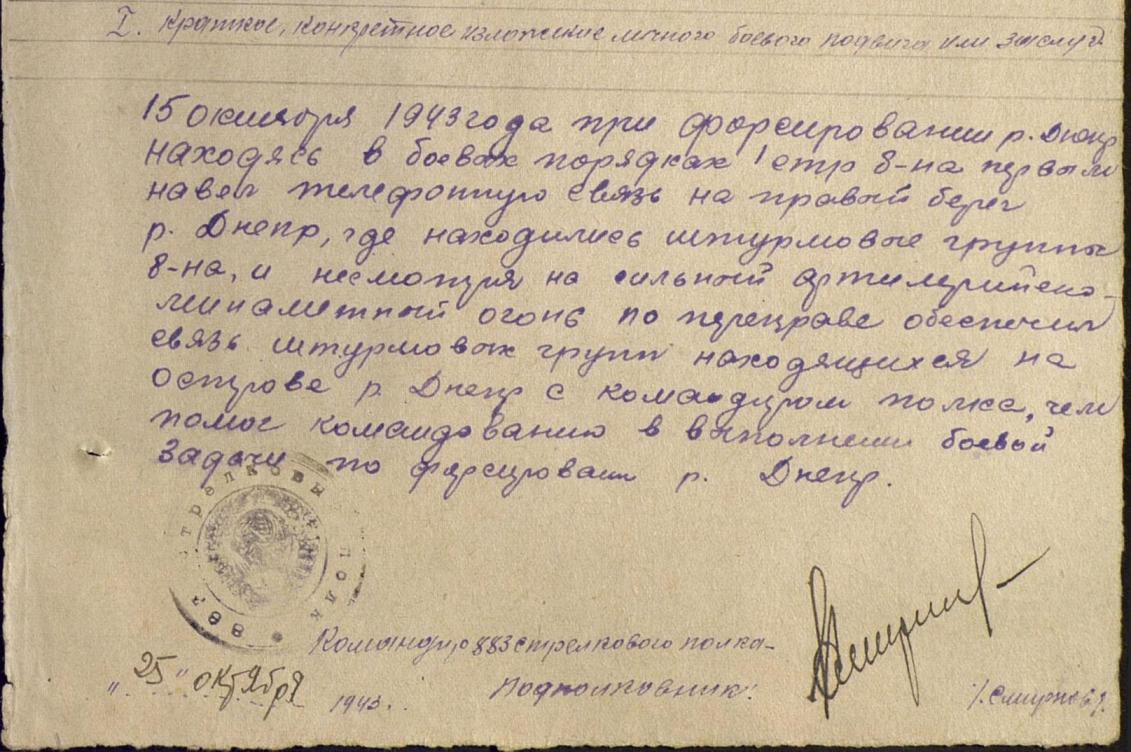 I. Краткое, конкретное изложение личного боевого подвига или заслуг
15 октября 1943 года при форсировании р. Днепр
находясь в боевых порядках 1 стр б-на первым
навел телефонную связь на правый берег
р. Днепр, где находились штурмовые группы
б-на, и несмотря на сильный артиллерийско-
минаметный огонь по переправе обеспечил
связь штурмовых групп находящихся на
острове р. Днепр с командиром полка, чем
помог командованию в выполнении боевой
задачи по форсировании р. Днепр.
Командир 883 стрелкового полка-
Подполковник:
/Смирнов/.
"25" октября 1943.
883 стрелковый полк